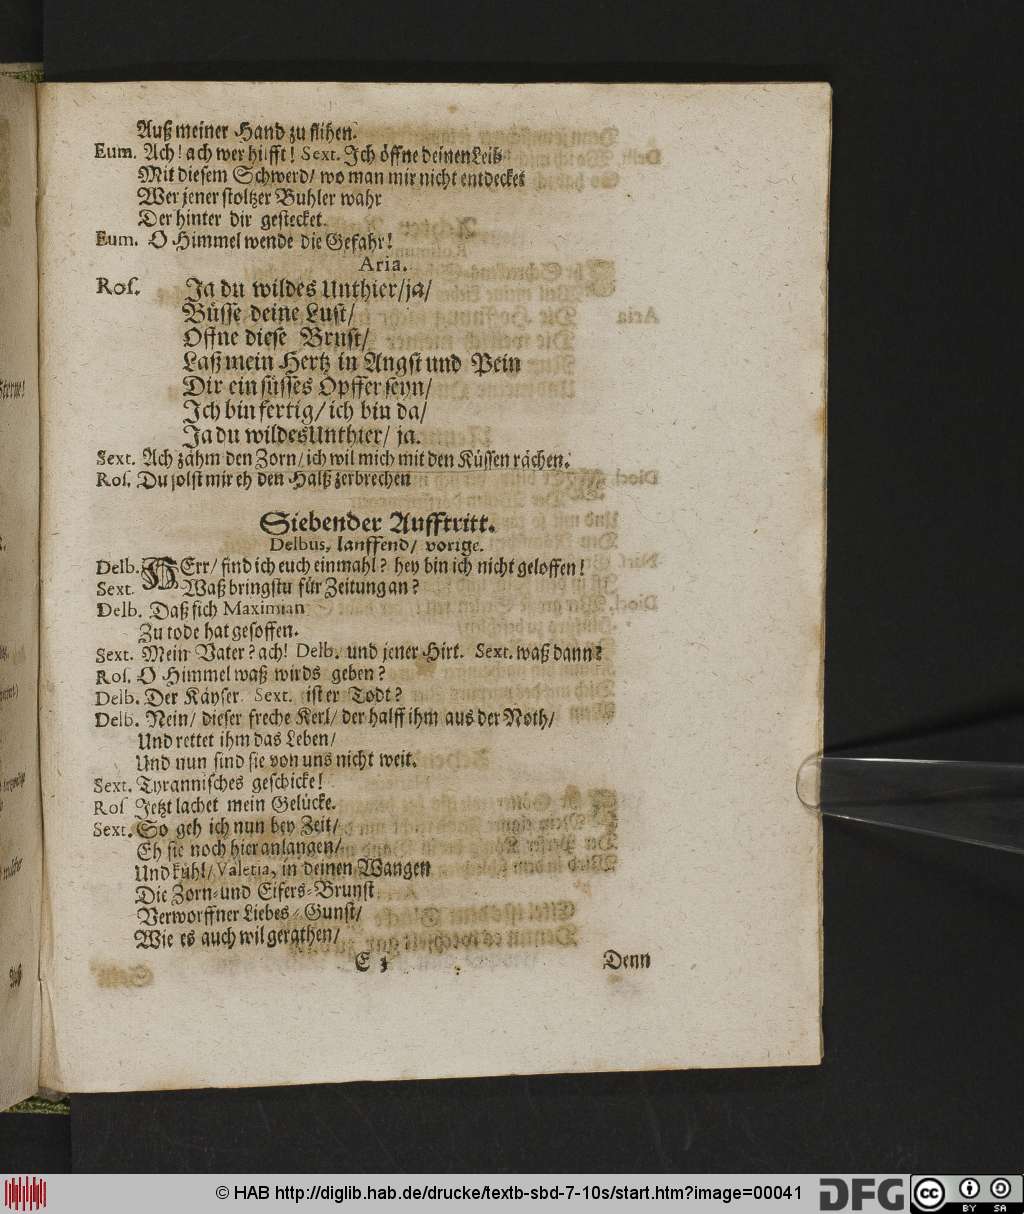 Auß meiner Hand zu flihen.
Eum. Ach! ach wer hilfft! Sext. Ich öffne deinen Leib
Mit diesem Schwerd/ wo man mir nicht entdecket
Wer jener stoltzer Buhler wahr
Der hinter dir gestecket.
Eum. O Himmel wende die Gefahr!
Aria.
Ros. Ja du wildes Unthier/ja/
Büsse deine Lust/
Offne diese Brust/
Laß mein Hertz in Angst und Pein
Dir ein süsses Opffer seyn/
Ich bin fertig/ ich bin da/
Ja du wildes Unthier/ ja.
Sext. Ach zähm den Zorn/ ich wil mich mit den Küssen rächen.
Ros. Du solst mir eh den Halß zerbrechen
Siebender Aufftritt.
Delbus, lauffend/ vorige.
Delb. HErr/ find ich euch einmahl? hey bin ich nicht geloffen!
Sext. Waß bringstu für Zeitung an?
Delb. Daß sich Maximian
Zu tode hat gesoffen.
Sext. Mein Vater? ach! Delb. und jener Hirt. Sext. waß dann?
Ros. O Himmel waß wirds geben?
Delb. Der Käyser. Sext. ist er Todt?
Delb. Nein/ dieser freche Kerl/ der halff ihm aus der Noth/
Und rettet ihm das Leben/
Und nun sind sie von uns nicht weit.
Sext. Tyrannisches geschicke!
Ros Jetzt lachet mein Gelücke.
Sext. So geh ich nun bey Zeit/
Eh sie noch hier anlangen/
Und kühl/ Valeria, in deinen Wangen
Die Zorn- und Eifers-Brunst
Verworffner Liebes-Gunst/
Wie es auch wil gerathen/
E 3 Denn
© HAB http://diglib.hab.de/drucke/textb-sbd-7-10s/start.htm?image=00041 DFG cc BY SA